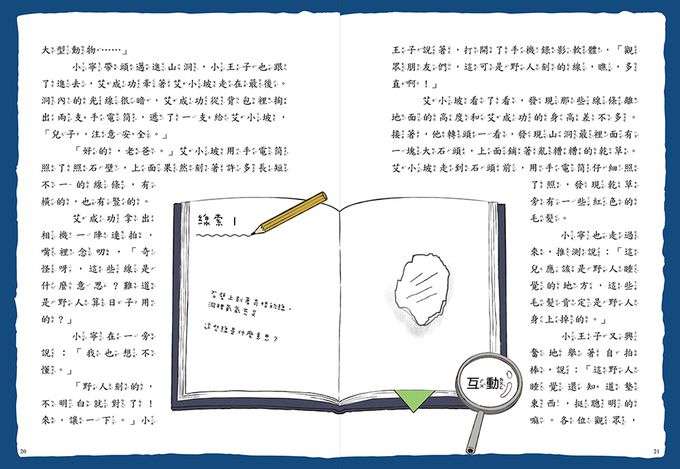 大型動物……」
小寧帶頭邁進山洞，小王子也跟
了進去，艾成功牽著艾小坡走在最後。
洞內的光線很暗，艾成功從背包裡掏
出兩支手電筒，遞了一支給艾小坡，
「兒子，注意安全。」
「好的，老爸。」艾小坡用手電筒
照了照石壁，上面果然刻著許多長短
不一的線條，有
橫的，也有豎的。
艾成功拿出
相機一陣連拍，
嘴裡念叨，「奇
怪呀，這些線是
什麼意思？難道
是野人算日子用
的？」
小寧在一旁
說：「我也想不
懂。」
「野人刻的，
不明白就對了！
來，讓一下。」小
線索 1
石壁上刻著奇怪的線，
這些線是什麼意思？
20
王子說著，打開了手機錄影軟體，「觀
眾朋友們，這可是野人刻的線，瞧，多
直啊！」
艾小坡看了看，發現那些線條離
地面的高度和艾成功的身高差不多。
接著，他轉頭一看，發現山洞最裡面有
一塊大石頭，上面鋪著亂糟糟的乾草。
艾小坡走到石頭前，用手電筒仔細照
了照，發現乾草
旁有一些紅色的
毛髮。
小寧也走過
來，推測說：「這
兒應該是野人睡
覺的地方，這些
毛髮肯定是野人
身上掉的。」
小王子又興
奮地舉著自拍
棒，說：「這野人
睡覺還知道墊
東西，挺聰明的
嘛。各位觀眾，
互動
21